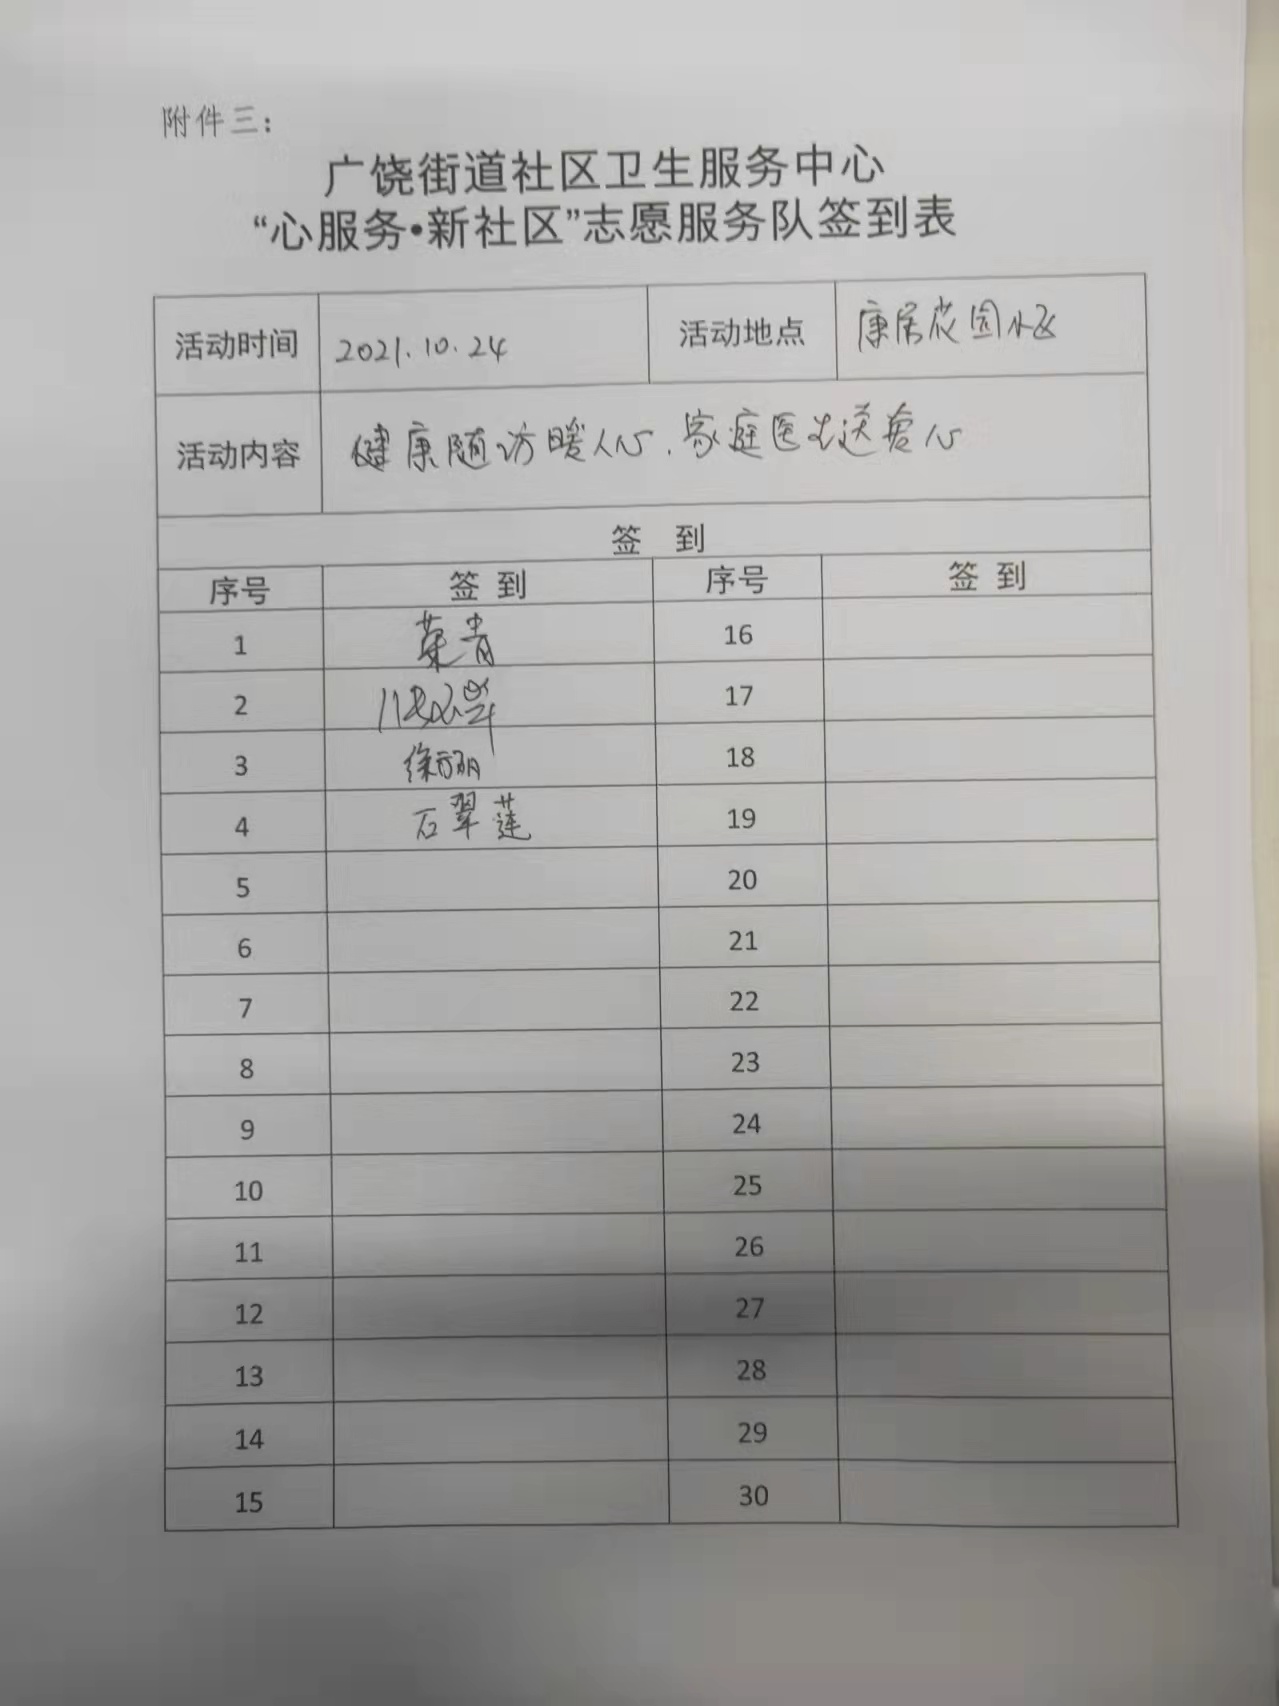 附件三：
广饶街道社区卫生服务中心
“心服务•新社区”志愿服务队签到表
活动时间 2021.10.24 活动地点 康居花园小区
活动内容 健康随访暖人心.家庭医生送爱心
签 到
序号 签到 序号 签到
1 荣青 16
2 17
3 徐丽 18
4 石翠莲 19
5 20
6 21
7 22
8 23
9 24
10 25
11 26
12 27
13 28
14 29
15 30